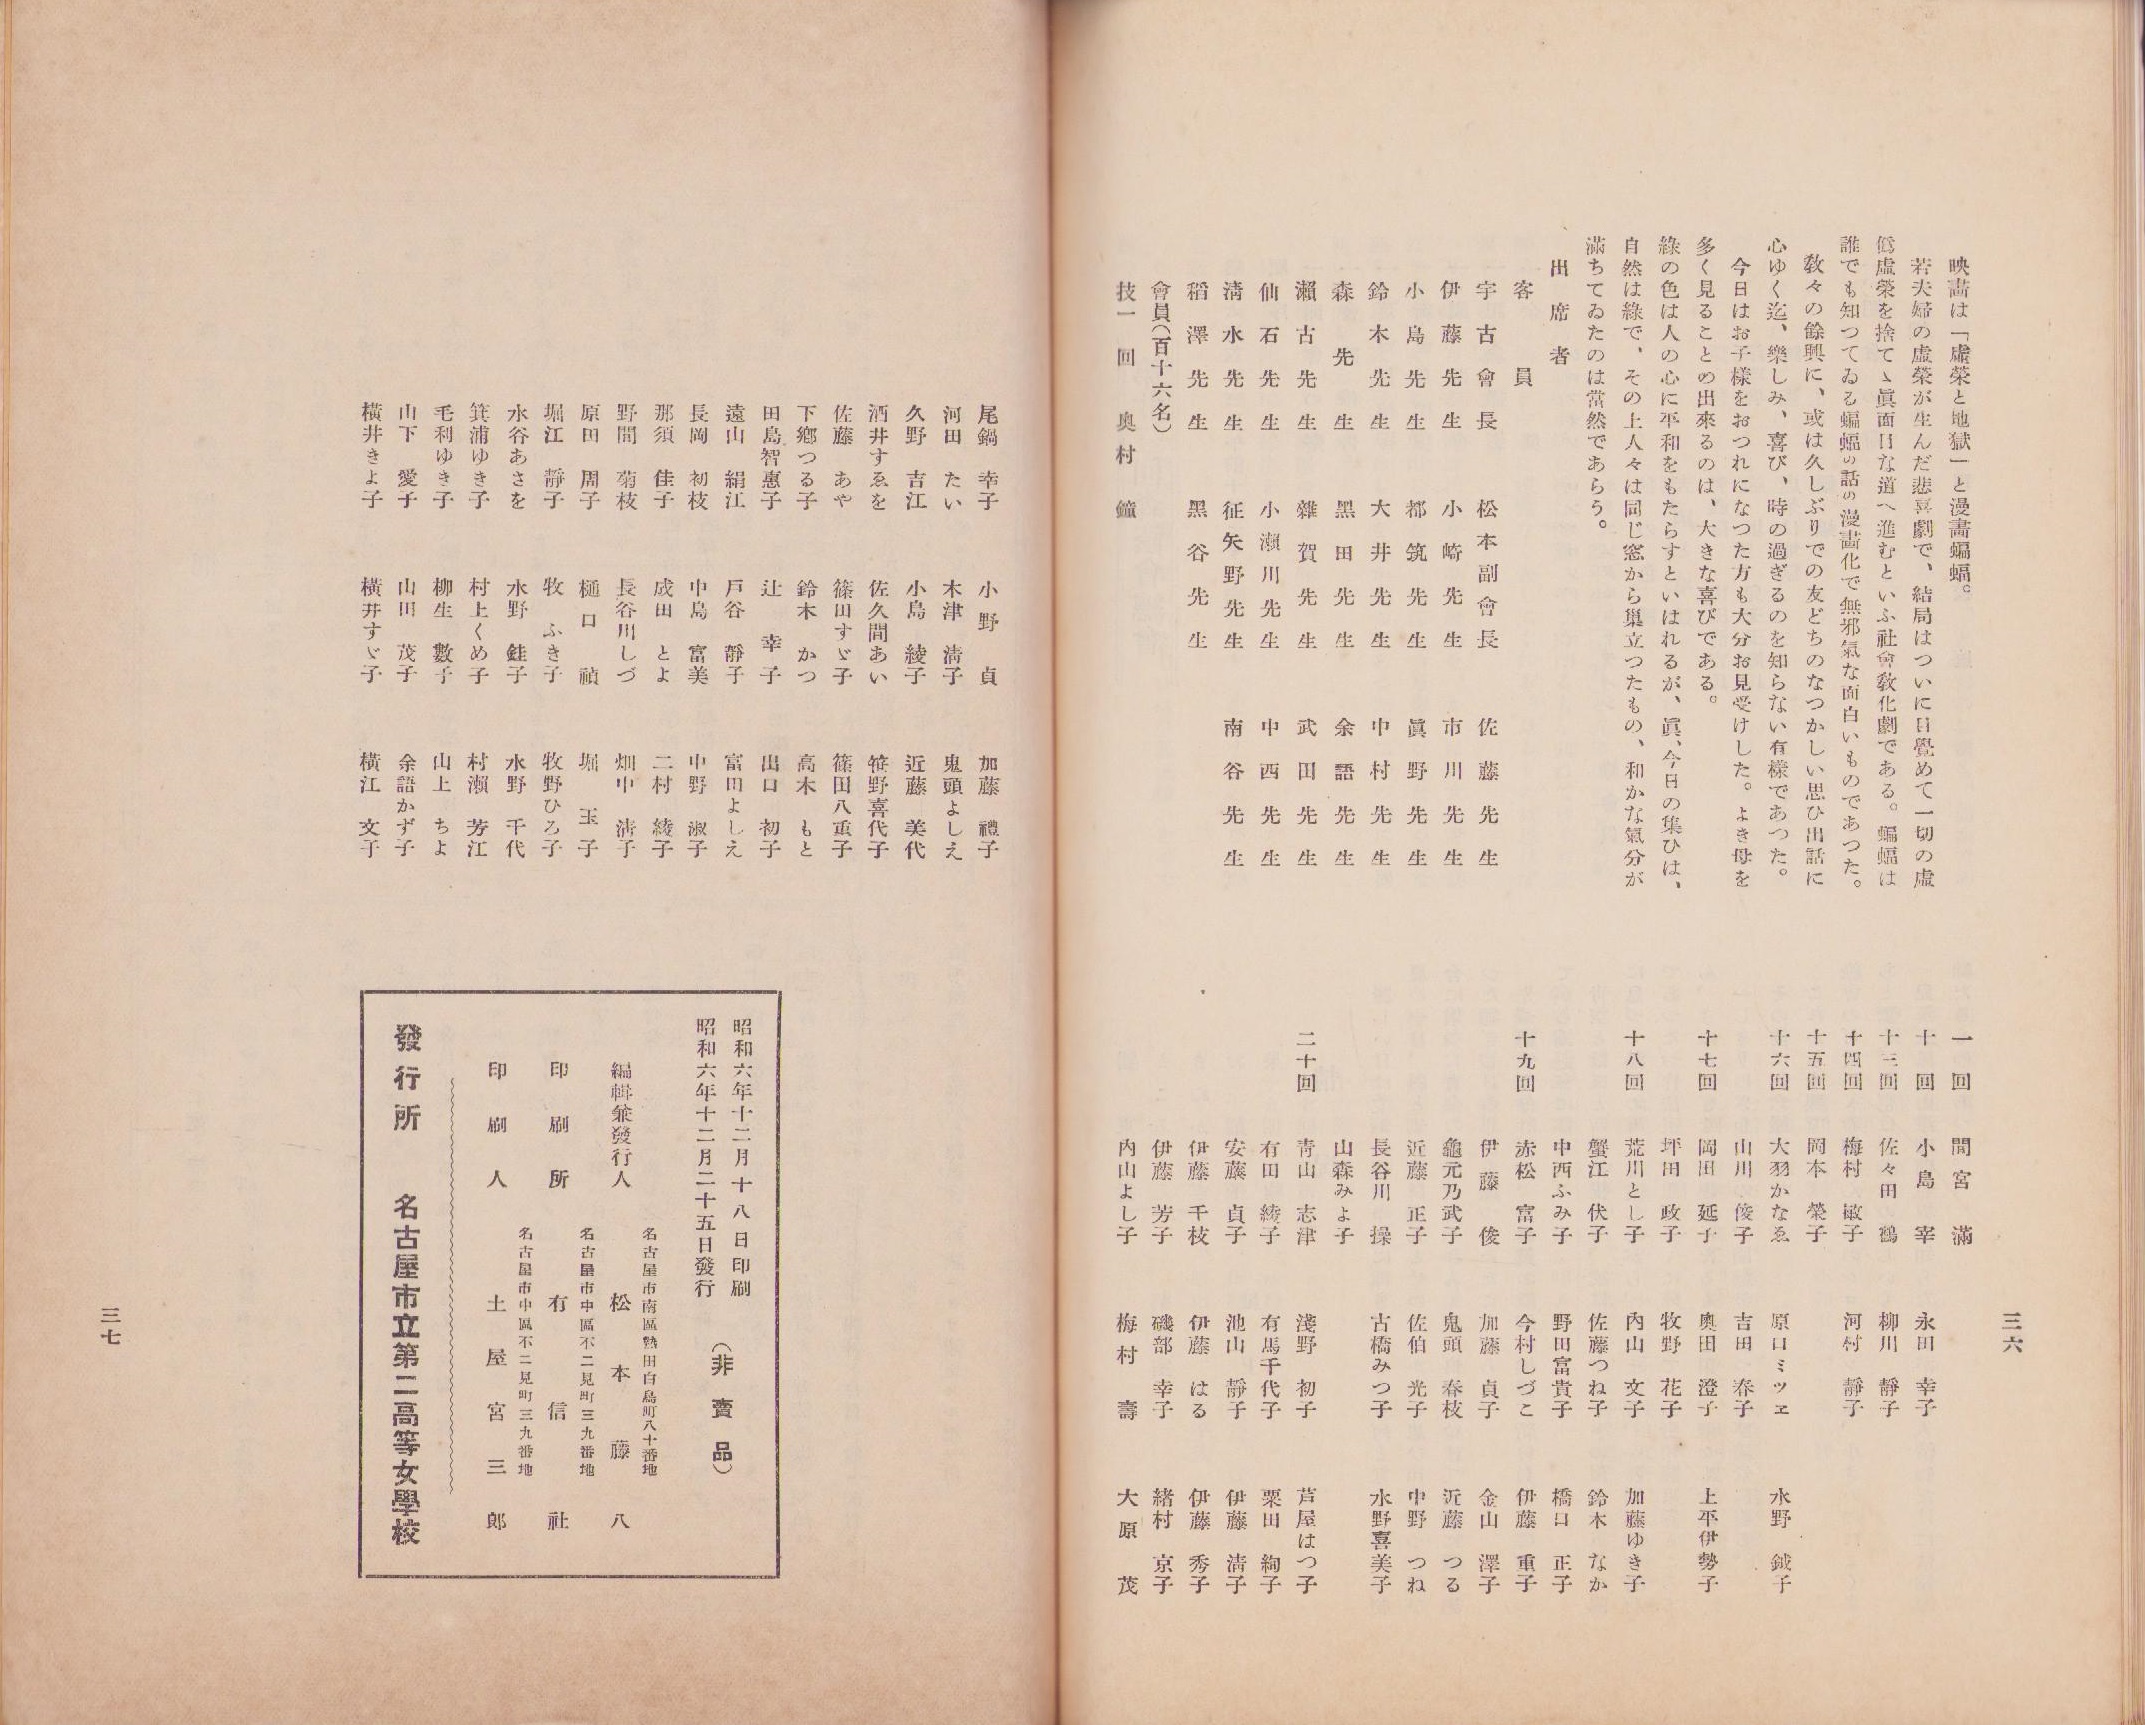 三六
映畵は「虛榮と地獄」と漫畵蝙蝠。
若夫婦の虛榮が生んだ悲喜劇で、結局はついに目覺めて一切の虛
僞虛榮を捨てゝ眞面目な道へ進むといふ社會敎化劇である。蝙蝠は
誰でも知つてゐる蝙蝠の話の漫畵化で無邪氣な面白いものであつた。
敎々の餘興に、或は久しぶりでの友どちのなつかしい思ひ出話に
心ゆく迄、樂しみ、喜び、時の過ぎるのを知らない有樣であつた。
今日はお子樣をおつれになつた方も大分お見受けした。よき母を
多く見ることの出來るのは、大きな喜びである。
綠の色は人の心に平和をもたらすといはれるが、眞、今日の集ひは、
自然は綠で、その上人々は同じ窓から巢立つたもの、和かな氣分が
滿ちてゐたのは當然であらう。
出席者
客員
宇古會長 松本副會長 佐藤先生
伊藤先生 小崎先生 市川先生
小島先生 都筑先生 眞野先生
鈴木先生 大井先生 中村先生
森先生 黑田先生 余語先生
瀨古先生 雜賀先生 武田先生
仙石先生 小瀨川先生 中西先生
淸水先生 征矢野先生 南谷先生
稻澤先生 黑谷先生
會員(百十六名)
技一回 奥村鐘
一回 間宮滿
十回 小島宰 永田幸子
十三回 佐々田鶴 柳川靜子
十四回 梅村敏子 河村靜子
十五回 岡本榮子
十六回 大羽かなゑ 原口ミツヱ 水野鉞子
山川俊子 吉田春子
十七回 岡田延子 奥田澄子 上平伊勢子
坪田政子 牧野花子
十八回 荒川とし子 內山文子 加藤ゆき子
蟹江伏子 佐藤つね子 鈴木なか
中西ふみ子 野田富貴子 橋口正子
十九回 赤松富子 今村しづこ 伊藤重子
伊藤俊 加藤貞子 金山澤子
龜元乃武子 鬼頭春枝 近藤つる
近藤正子 佐伯光子 中野つね
長谷川操 古橋みつ子 水野喜美子
山森みよ子
二十回 靑山志津 淺野初子 芦屋はつ子
有田綾子 有馬千代子 栗田絢子
安藤貞子 池山靜子 伊藤淸子
伊藤千枝 伊藤はる 伊藤秀子
伊藤芳子 磯部幸子 緖村京子
內山よし子 梅村壽 大原茂
尾鍋幸子 小野貞 加藤禮子
河田たい 木津淸子 鬼頭よしえ
久野吉江 小島綾子 近藤美代
酒井すゑを 佐久間あい 笹野喜代子
佐藤あや 篠田すゞ子 篠田八重子
下鄕つる子 鈴木かつ 高木もと
田島智惠子 辻幸子 出口初子
遠山絹江 戶谷靜子 富田よしえ
長岡初枝 中島富美 中野淑子
那須佳子 成田とよ 二村綾子
野間菊枝 長谷川しづ 畑中淸子
原田周子 樋口禎 堀玉子
堀江靜子 牧ふき子 牧野ひろ子
水谷あさを 水野銈子 水野千代
箕浦ゆき子 村上くめ子 村瀨芳江
毛利ゆき子 柳生數子 山上ちよ
山下愛子 山田茂子 余語かず子
橫井きよ子 橫井すゞ子 橫江文子
昭和六年十二月十八日印刷
昭和六年十二月二十五日發行
(非賣品)
名古屋市南區熱田白鳥町八十番地
編輯兼發行人 松本藤八
名古屋市中區不二見町三九番地
印刷所 有信社
名古屋市中區不二見町三九番地
印刷人 土屋宮三郎
發行所 名古屋市立第二高等女學校
三七